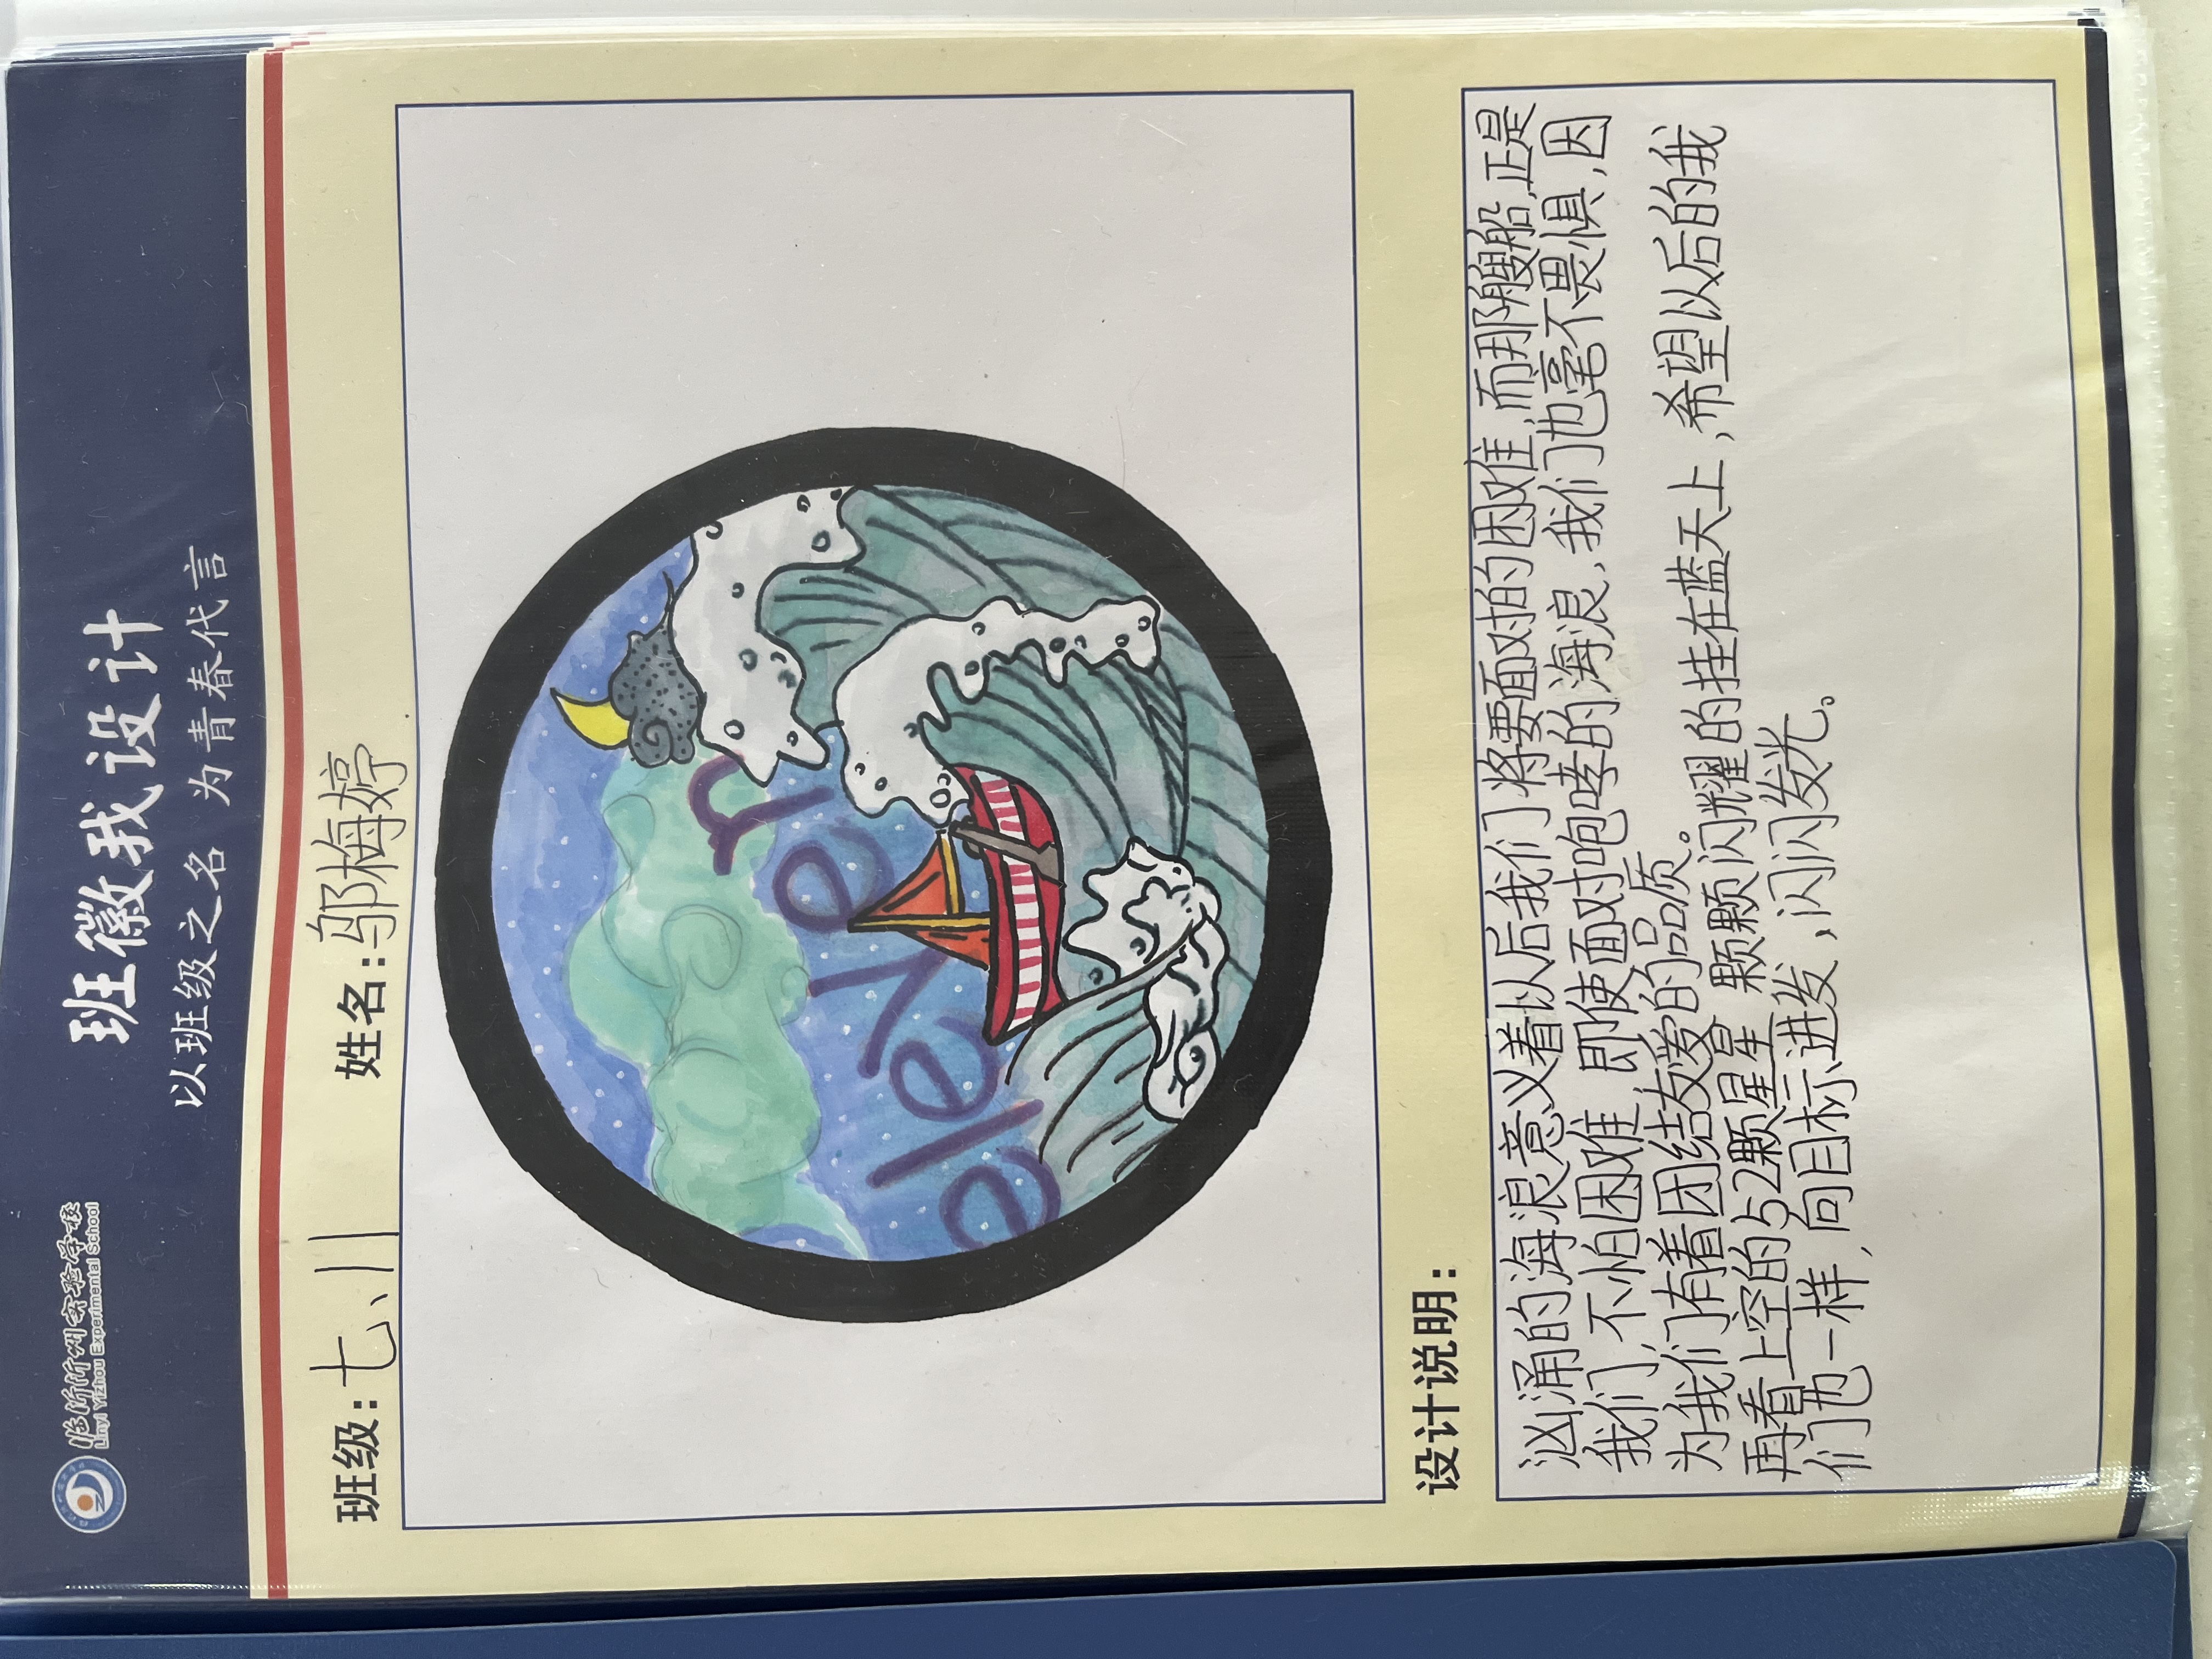 临沂沂州实验学校
Linyi Yizhou Experimental School
班徽我设计
以班级之名 为青春代言
班级：七、11
姓名：邬梅婷
eleven
设计说明：
汹涌的海浪意义着以后我们将要面对的困难,而那艘船,正是
我们,不怕困难,即使面对咆哮的海浪,我们也毫不畏惧,因
为我们有着团结友爱的品质。
再看上空的52颗星星,颗颗闪耀的挂在蓝天上,希望以后的我
们也一样,向目标进发,闪闪发光。